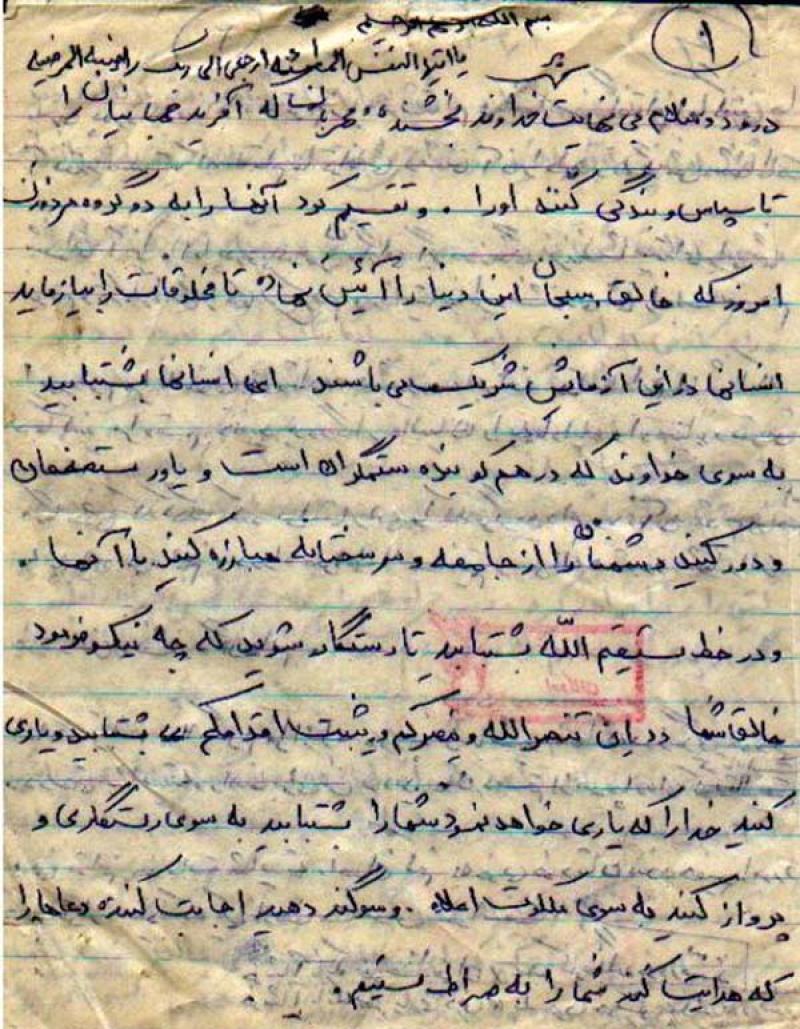 بسم الله الرحمن الرحیم
۱
یا ایتها النفس المطمئنه ارجعی الی ربک راضیه المرضیه
درود و سلام بی نهایت خداوند بخشنده و مهربانی که آفرید جهانیان را
تا سپاس و بندگی کنند او را . و تقسیم کرد آنها را به دو گروه مرد و زن
امروز که خالق سبحان این دنیا را آئین نهاد تا مخلوقات را بیازماید
انسانها در این آزمایش شریک می باشند . ای انسانها بشتابید
به سوی خداوند که در هم کوبنده ستمگران است و یاور مستضعفان
و دور کنید دشمنان را از جامعه و سرسختانه مبارزه کنید با آنها .
و در خط مستقیم الله بشتابید تا رستگار شوید که چه نیکو فرمود
خالق شما ان تنصرالله و ینصرکم و یثبت اقدامکم بشتابید و یاری
کنید خدا را که یاری خواهد نمود شما را بشتابید به سوی رستگاری و
پرواز کنید به سوی ملکوت اعلاء . و سوگند دهید اجابت کننده دعاها را
که هدایت کند شما را به صراط مستقیم .